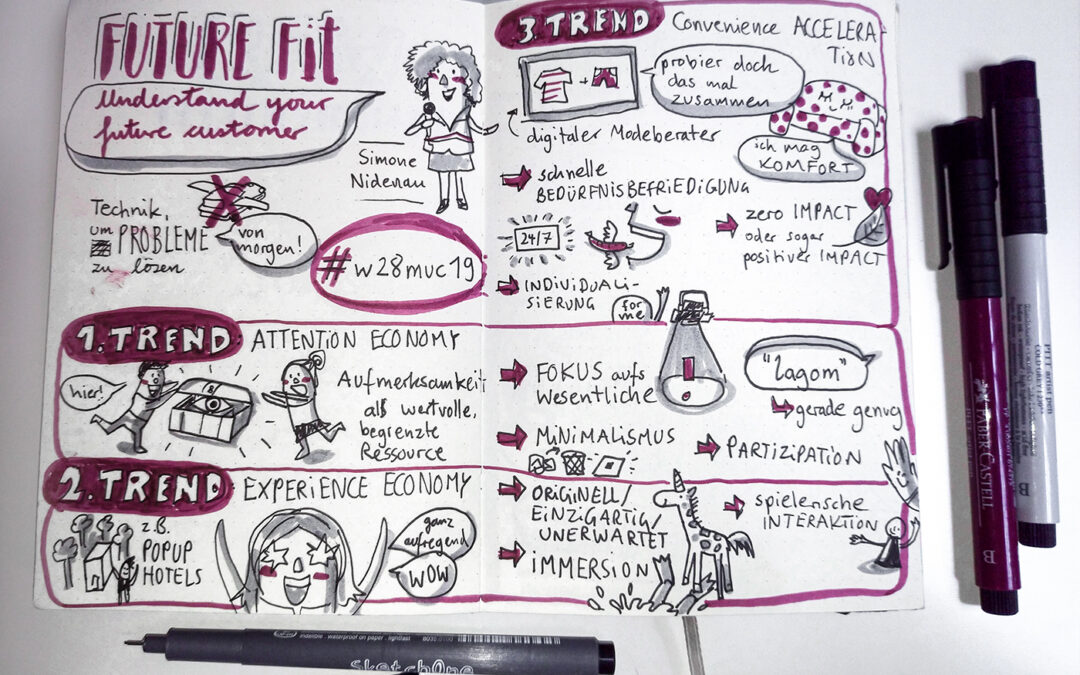 FUTURE Fit
Understand your
future customer
Simone
Nidenau
Technik,
um
PROBLEME
zu lösen
von
morgen!
#w28muc19
1. TREND
ATTENTION ECONOMY
hier!
Aufmerksamkeit
als wertvolle,
begrenzte
Ressource
2. TREND
EXPERIENCE ECONOMY
z.B.
POPUP
HOTELS
ganz
aufregend
WOW
3. TREND
Convenience ACCELERA-
TION
probier doch
das mal
zusammen
digitaler Modeberater
ich mag
KOMFORT
schnelle
BEDÜRFNISBEFRIEDIGUNG
24/7
zero IMPACT
oder sogar
positiver IMPACT
INDIVIDUALI-
SIERUNG
for
me
FOKUS aufs
Wesentliche
"Lagom"
gerade genug
MINIMALISMUS
PARTIZIPATION
ORIGINELL/
EINZIGARTIG/
UNERWARTET
IMMERSION
spielerische
INTERAKTION
FABER-CASTELL
B
PITT artist pen
COLD GREY
B
indelible . waterproof on paper . lightfast
sketchOne